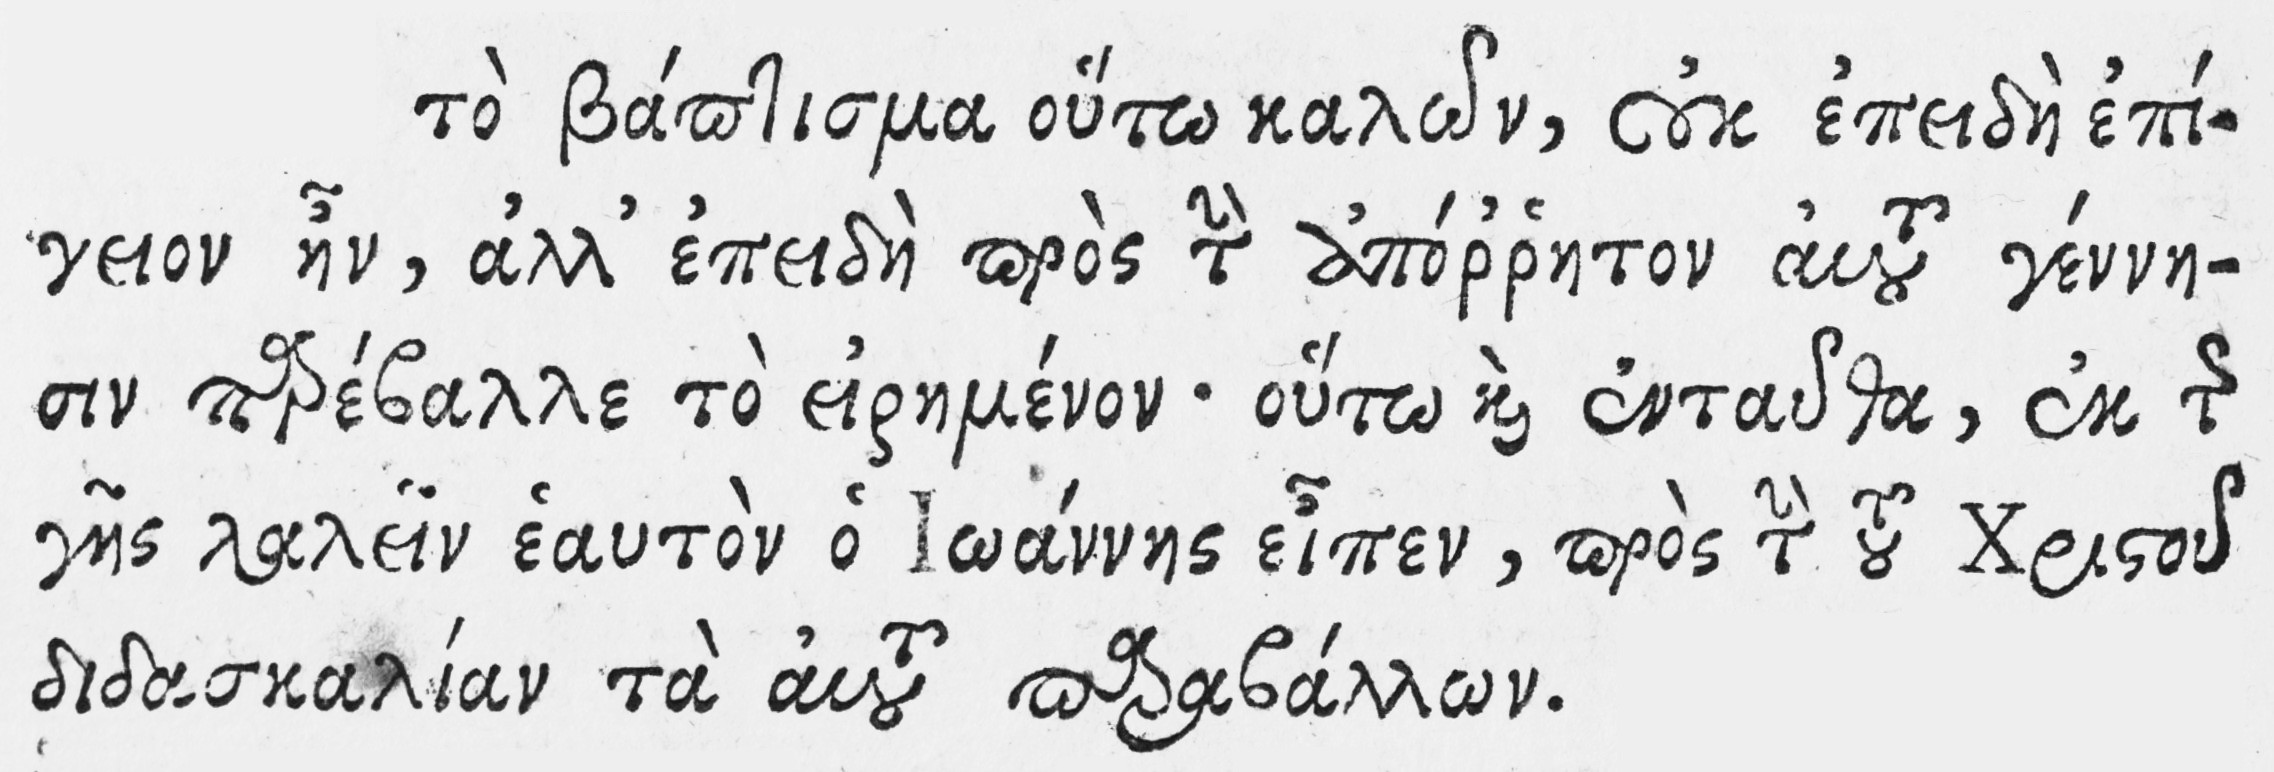 τὸ βάπτισμα οὕτω καλῶν, οὐκ ἐπειδὴ ἐπί-
γειον ἦν, ἀλλ' ἐπειδὴ πρὸς τὴν ἀπόῤῥητον αὐτοῦ γέννη-
σιν παρέβαλλε τὸ εἰρημένον· οὕτω καὶ ἐνταῦθα, ἐκ τῆς
γῆς λαλεῖν ἑαυτὸν ὁ Ἰωάννης εἶπεν, πρὸς τὴν τοῦ Χριστοῦ
διδασκαλίαν τὰ αὐτοῦ παραβάλλων.